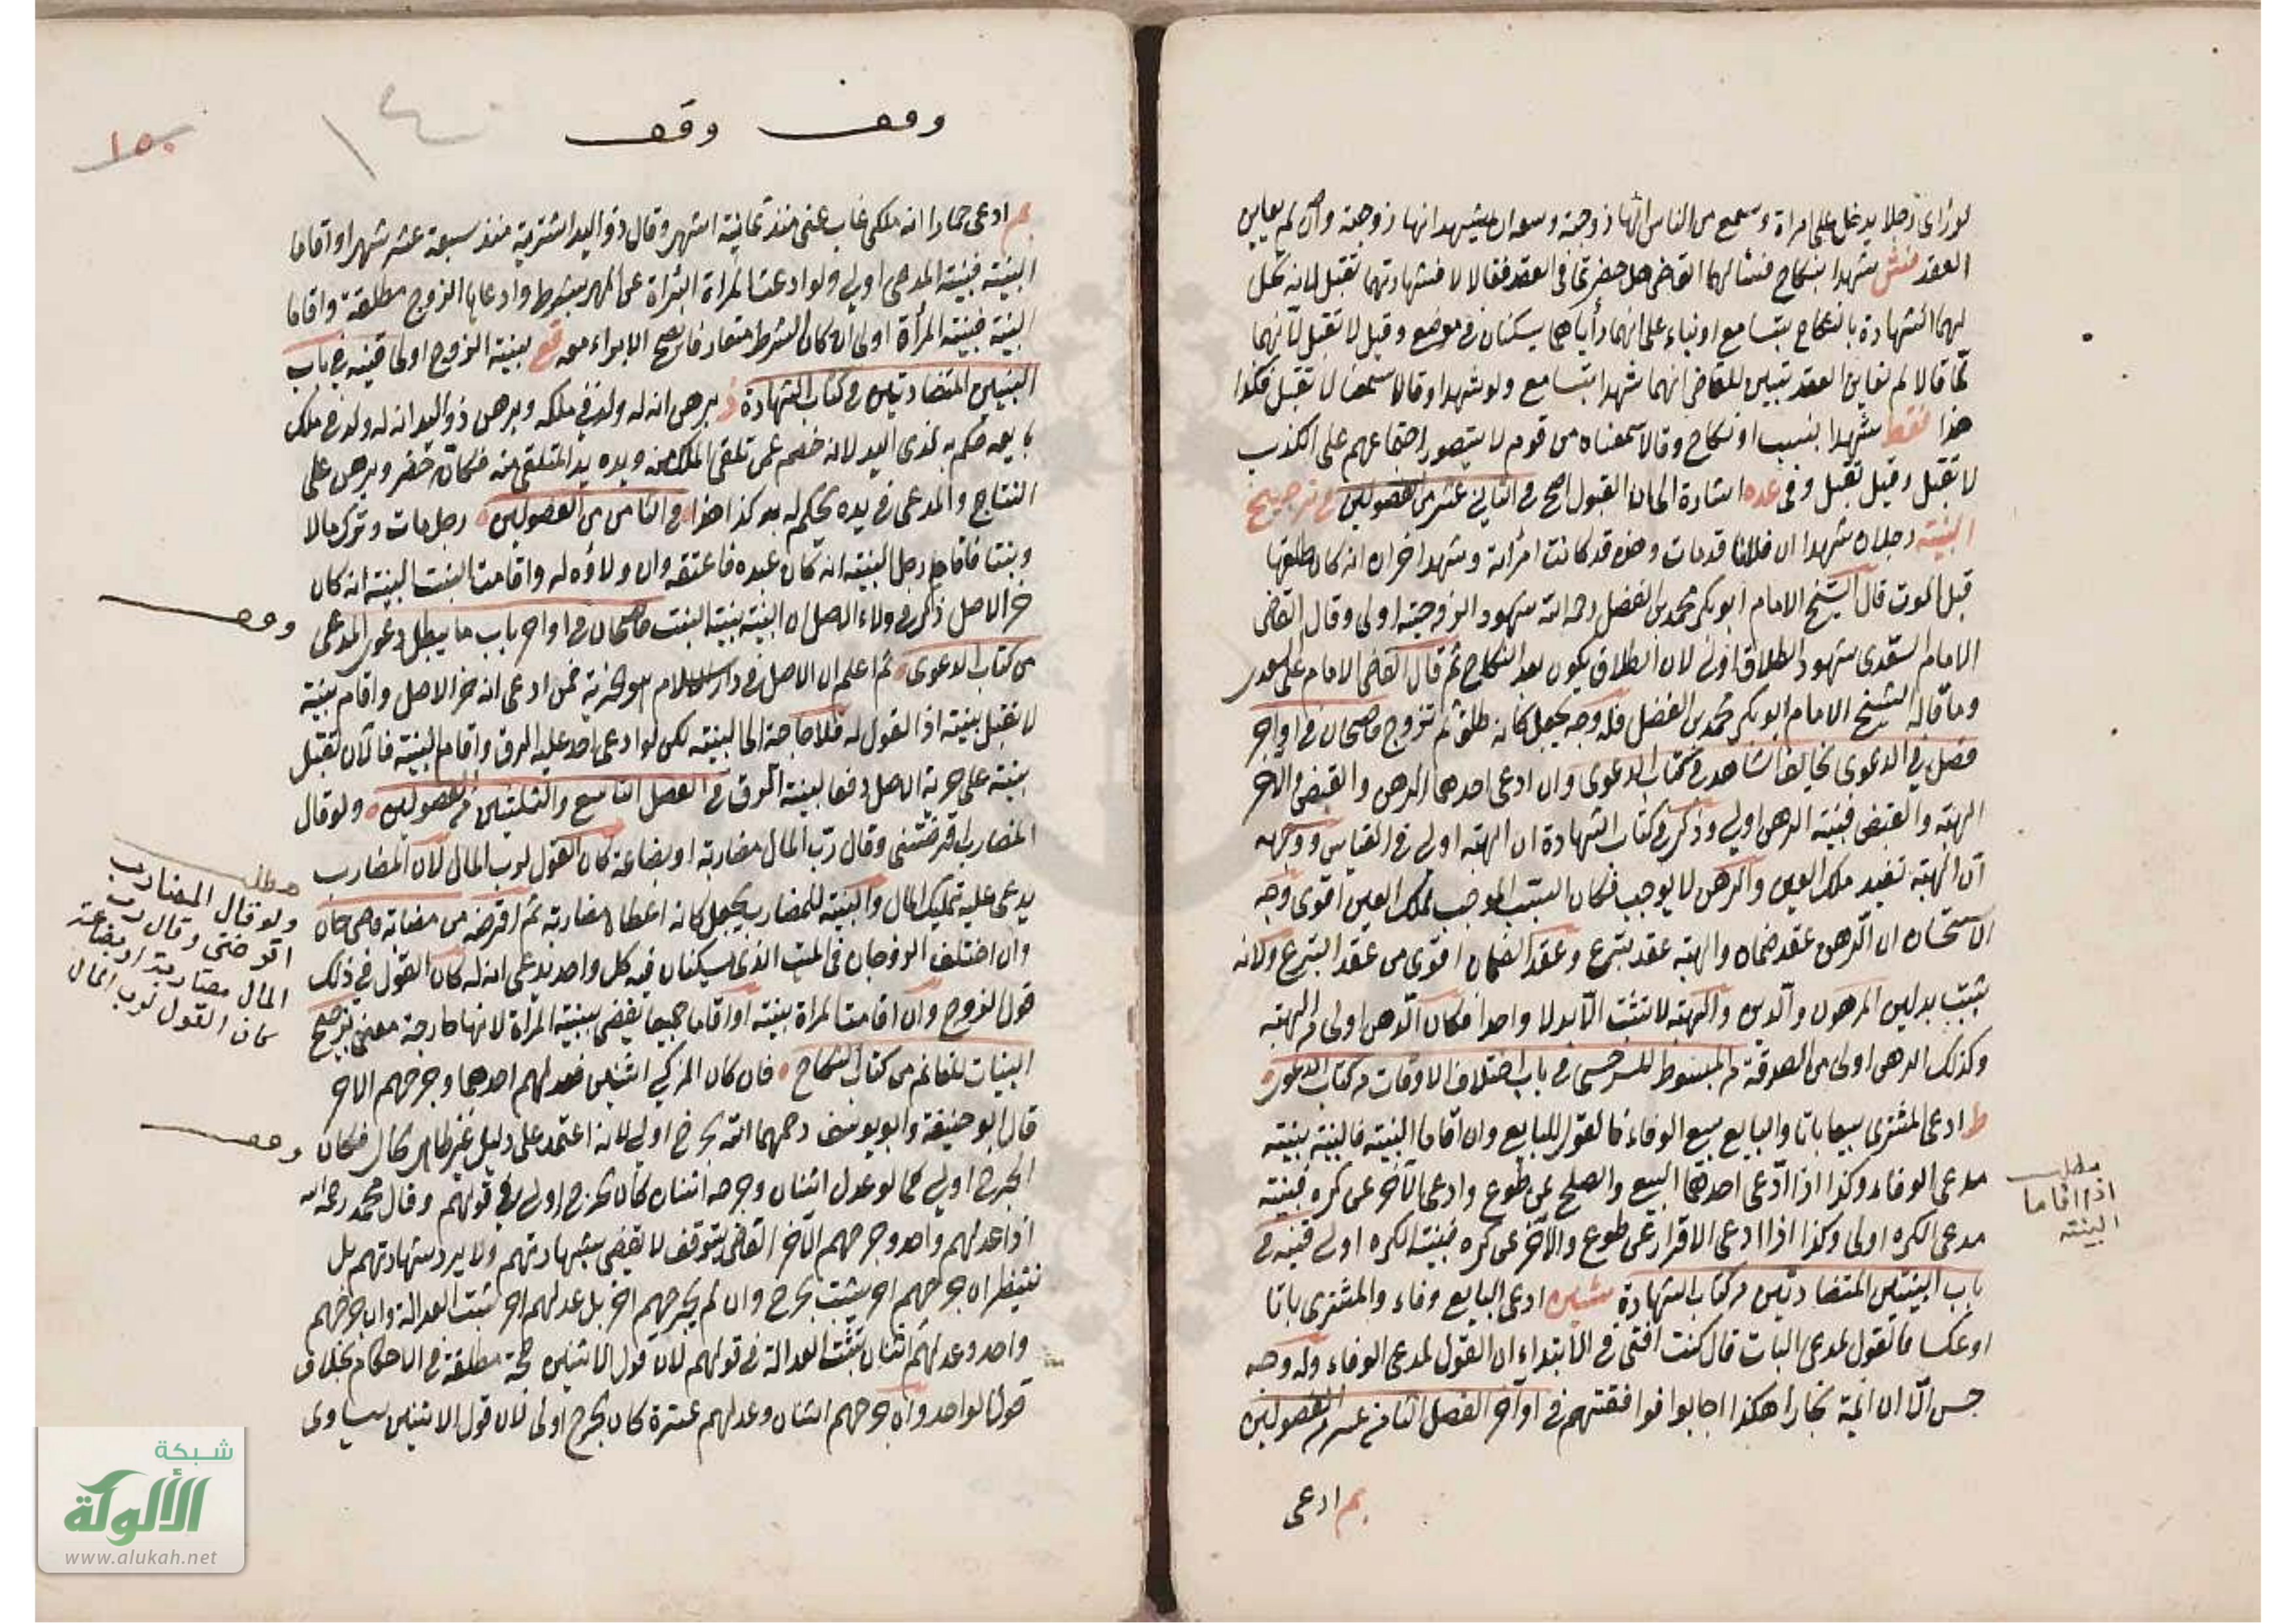 لو رأى رجلا يدخل على امرأة وسمع من الناس انها زوجته وسعه ان يشهد انها زوجته وان لم يعاين
العقد فش شهدا بنكاح فسئالهما القاضى هل حضرتما فى العقد فقالا لا فشهادتهما تقبل لانه تحل
لهما الشهادة بالنكاح بتسامع او بناء على انهما رأياهما يسكنان فى موضع وقيل لا تقبل لانهما
لما قالا لم نعاين العقد تبين للقاضى انهما شهدا بتسامع ولو شهدا وقالا سمعنا لا تقبل فكذا
هذا فقط شهدا بنسب او نكاح وقالا سمعناه من قوم لا يتصور اجتماعهم على الكذب
لا تقبل وقيل تقبل وفى عده اشارة الى ان القبول اصح فى الثانى عشر من الفصولين فى ترجيح
البينة رجلان شهدا ان فلانا قد مات وهذه قد كانت امرأته وشهد اخران انه كان طلقها
قبل الموت قال الشيخ الامام ابو بكر محمد بن الفضل رحمه الله شهود الزوجية اولى وقال القاضى
الامام السغدى شهود الطلاق اولى لان الطلاق يكون بعد النكاح ثم قال القاضى الامام على السغدى
وما قاله الشيخ الامام ابو بكر محمد بن الفضل فله وجه يجعل كانه طلق ثم تزوج قاضيخان فى اواخر
فصل فى الدعوى تخالفها الشاهد فى كتاب الدعوى وان ادعى احدهما الرهن والقبض والاخر
الهبة والقبض فبينة الرهن اولى وذكر فى كتاب الشهادة ان الهبة اولى فى القياس ووجهه
ان الهبة تفيد ملك العين والرهن لا يوجب فكان السبب الموجب لملك العين اقوى وجه
الاستحسان ان الرهن عقد ضمان والهبة عقد تبرع وعقد الضمان اقوى من عقد التبرع ولانه
يثبت بدلين المرهون والدين والهبة لا تثبت الا بدلا واحدا فكان الرهن اولى من الهبة
وكذلك الرهن اولى من الصدقة من المبسوط للسرخسى فى باب اختلاف الاوقات من كتاب الدعوى
ط ادعى المشترى بيعا باتا والبايع بيع الوفاء فالقول للبايع وان اقاما البينة فالبينة بينة
مدعى الوفاء وكذا اذا ادعى احدهما البيع والصلح عن طوع وادعى الآخر عن كره فبينة
مدعى الكره اولى وكذا اذا ادعى الاقرار عن طوع والآخر عن كره فبينة الكره اولى قنيه فى
باب البينتين المتضادتين من كتاب الشهادة ادعى البايع وفاء والمشترى باتا
او عكسا فالقول لمدعى البات قال كنت افتى فى الابتداء ان القول لمدعى الوفاء وله وجه
حسن الا ان ائمة بخارا هكذا اجابوا فوافقتهم فى اواخر الفصل الثامن عشر من الفصولين
بم ادعى
مطلب
اذا اقاما
البينة
وقف وقف
١٥٠
بم ادعى حمارا انه ملكى غاب عنى منذ ثمانية اشهر وقال ذو اليد اشتريته منذ سبعة عشر شهرا واقاما
البينة فبينة المدعى اولى ولو ادعت المرأة البرأة عن المهر بشرط وادعاها الزوج مطلقة واقاما
البينة فبينة المرأة اولى ان كان الشرط متعارفا يصح الابراء معه قع بينة الزوج اولى قنيه فى باب
البينتين المتضادتين فى كتاب الشهادة برهن انه له ولد فى ملكه وبرهن ذو اليد انه له ولد فى ملك
بايعه حكم به لذى اليد لانه خصم عمن تلقى الملك منه ويده يد المتلقى منه فكانه حضر وبرهن على
النتاج والمدعى فى يده يحكم له به كذا هذا فى الثامن من الفصولين رجل مات وترك مالا
وبنتا فاقام رجل البينة انه كان عبده فاعتقه وان ولاؤه له واقامت البنت البينة انه كان
حر الاصل ذكر فى ولاء الاصل ان البينة بينة البنت قاضيخان فى اواخر باب ما يبطل دعوى المدعى
من كتاب الدعوى ثم اعلم ان الاصل فى دار الاسلام هو الحرية فمن ادعى انه حر الاصل واقام بينة
لا تقبل بينته اذ القول له فلا حاجة الى البينة لكن لو ادعى احد عليه الرق واقام البينة فالآن تقبل
بينته على حرية الاصل دفعا لبينة الرق فى الفصل التاسع والثلثين من الفصولين ولو قال
المضارب اقرضتنى وقال رب المال مضاربة او بضاعة كان القول لرب المال لان المضارب
يدعى عليه تمليك المال والبينة للمضارب يجعل كانه اعطاه مضاربة ثم اقرضه من مضاربة قاضيخان
وان اختلف الزوجان فى البيت الذى يسكنان فيه كل واحد يدعى انه له كان القول فى ذلك
قول الزوج وان اقامت المرأة بينة او اقاما جميعا يقضى ببينة المرأة لانها خارجة معنى ترجيح
البينات للغانم من كتاب النكاح فان كان المزكى اثنين فعدلهم احدهما وجرحهم الاخر
قال ابو حنيفة وابو يوسف رحمهما الله الجرح اولى لانه اعتمد على دليل غير ظاهر الحال فكان
الجرح اولى كما لو عدل اثنان وجرحه اثنان كان الجرح اولى فى قولهم وقال محمد رحمه الله
اذا عدلهم واحد وجرحهم الآخر القاضى يتوقف لا يقضى بشهادتهم ولا يرد شهادتهم بل
ينتظر ان جرحهم اخر يثبت الجرح وان لم يجرحهم اخر بل عدلهم اخر تثبت العدالة وان جرحهم
واحد وعدلهم اثنان تثبت العدالة فى قولهم لان قول الاثنين حجة مطلقة فى الاحكام بخلاف
قول الواحد وان جرحهم اثنان وعدلهم عشرة كان الجرح اولى لان قول الاثنين يساوى
وقف
مطلب
ولو قال المضارب
اقرضتنى وقال رب
المال مضاربة او بضاعة
كان القول لرب المال
وقف
شبكة
الألوكة
www.alukah.net